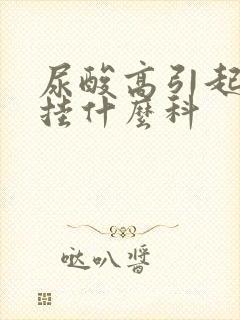 尿酸高引起
挂什麼科
哒叭醬